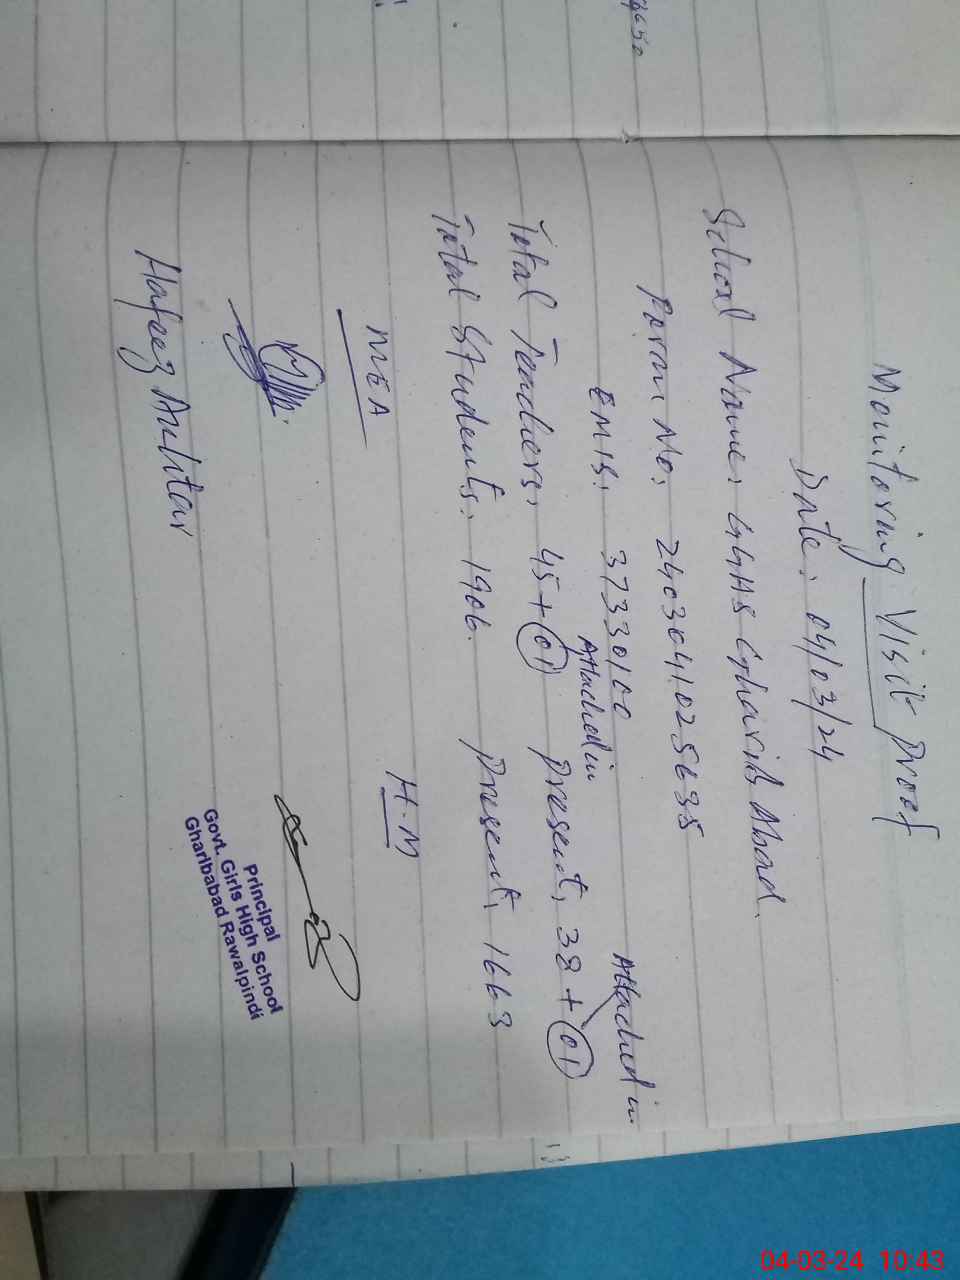 Monitoring Visit Proof
Date: 04/03/24
School Name: GGHS Gharib Abad.
Form No: 2403041025635
EMIS: 37330100
Attached in
Attached in
Total Teachers: 45+01 Present: 38+01
Total Students: 1906. Present: 1663
MEA
H.M
Hafeez Akhtar
Principal
Govt. Girls High School
Gharibabad Rawalpindi
04-03-24 10:43